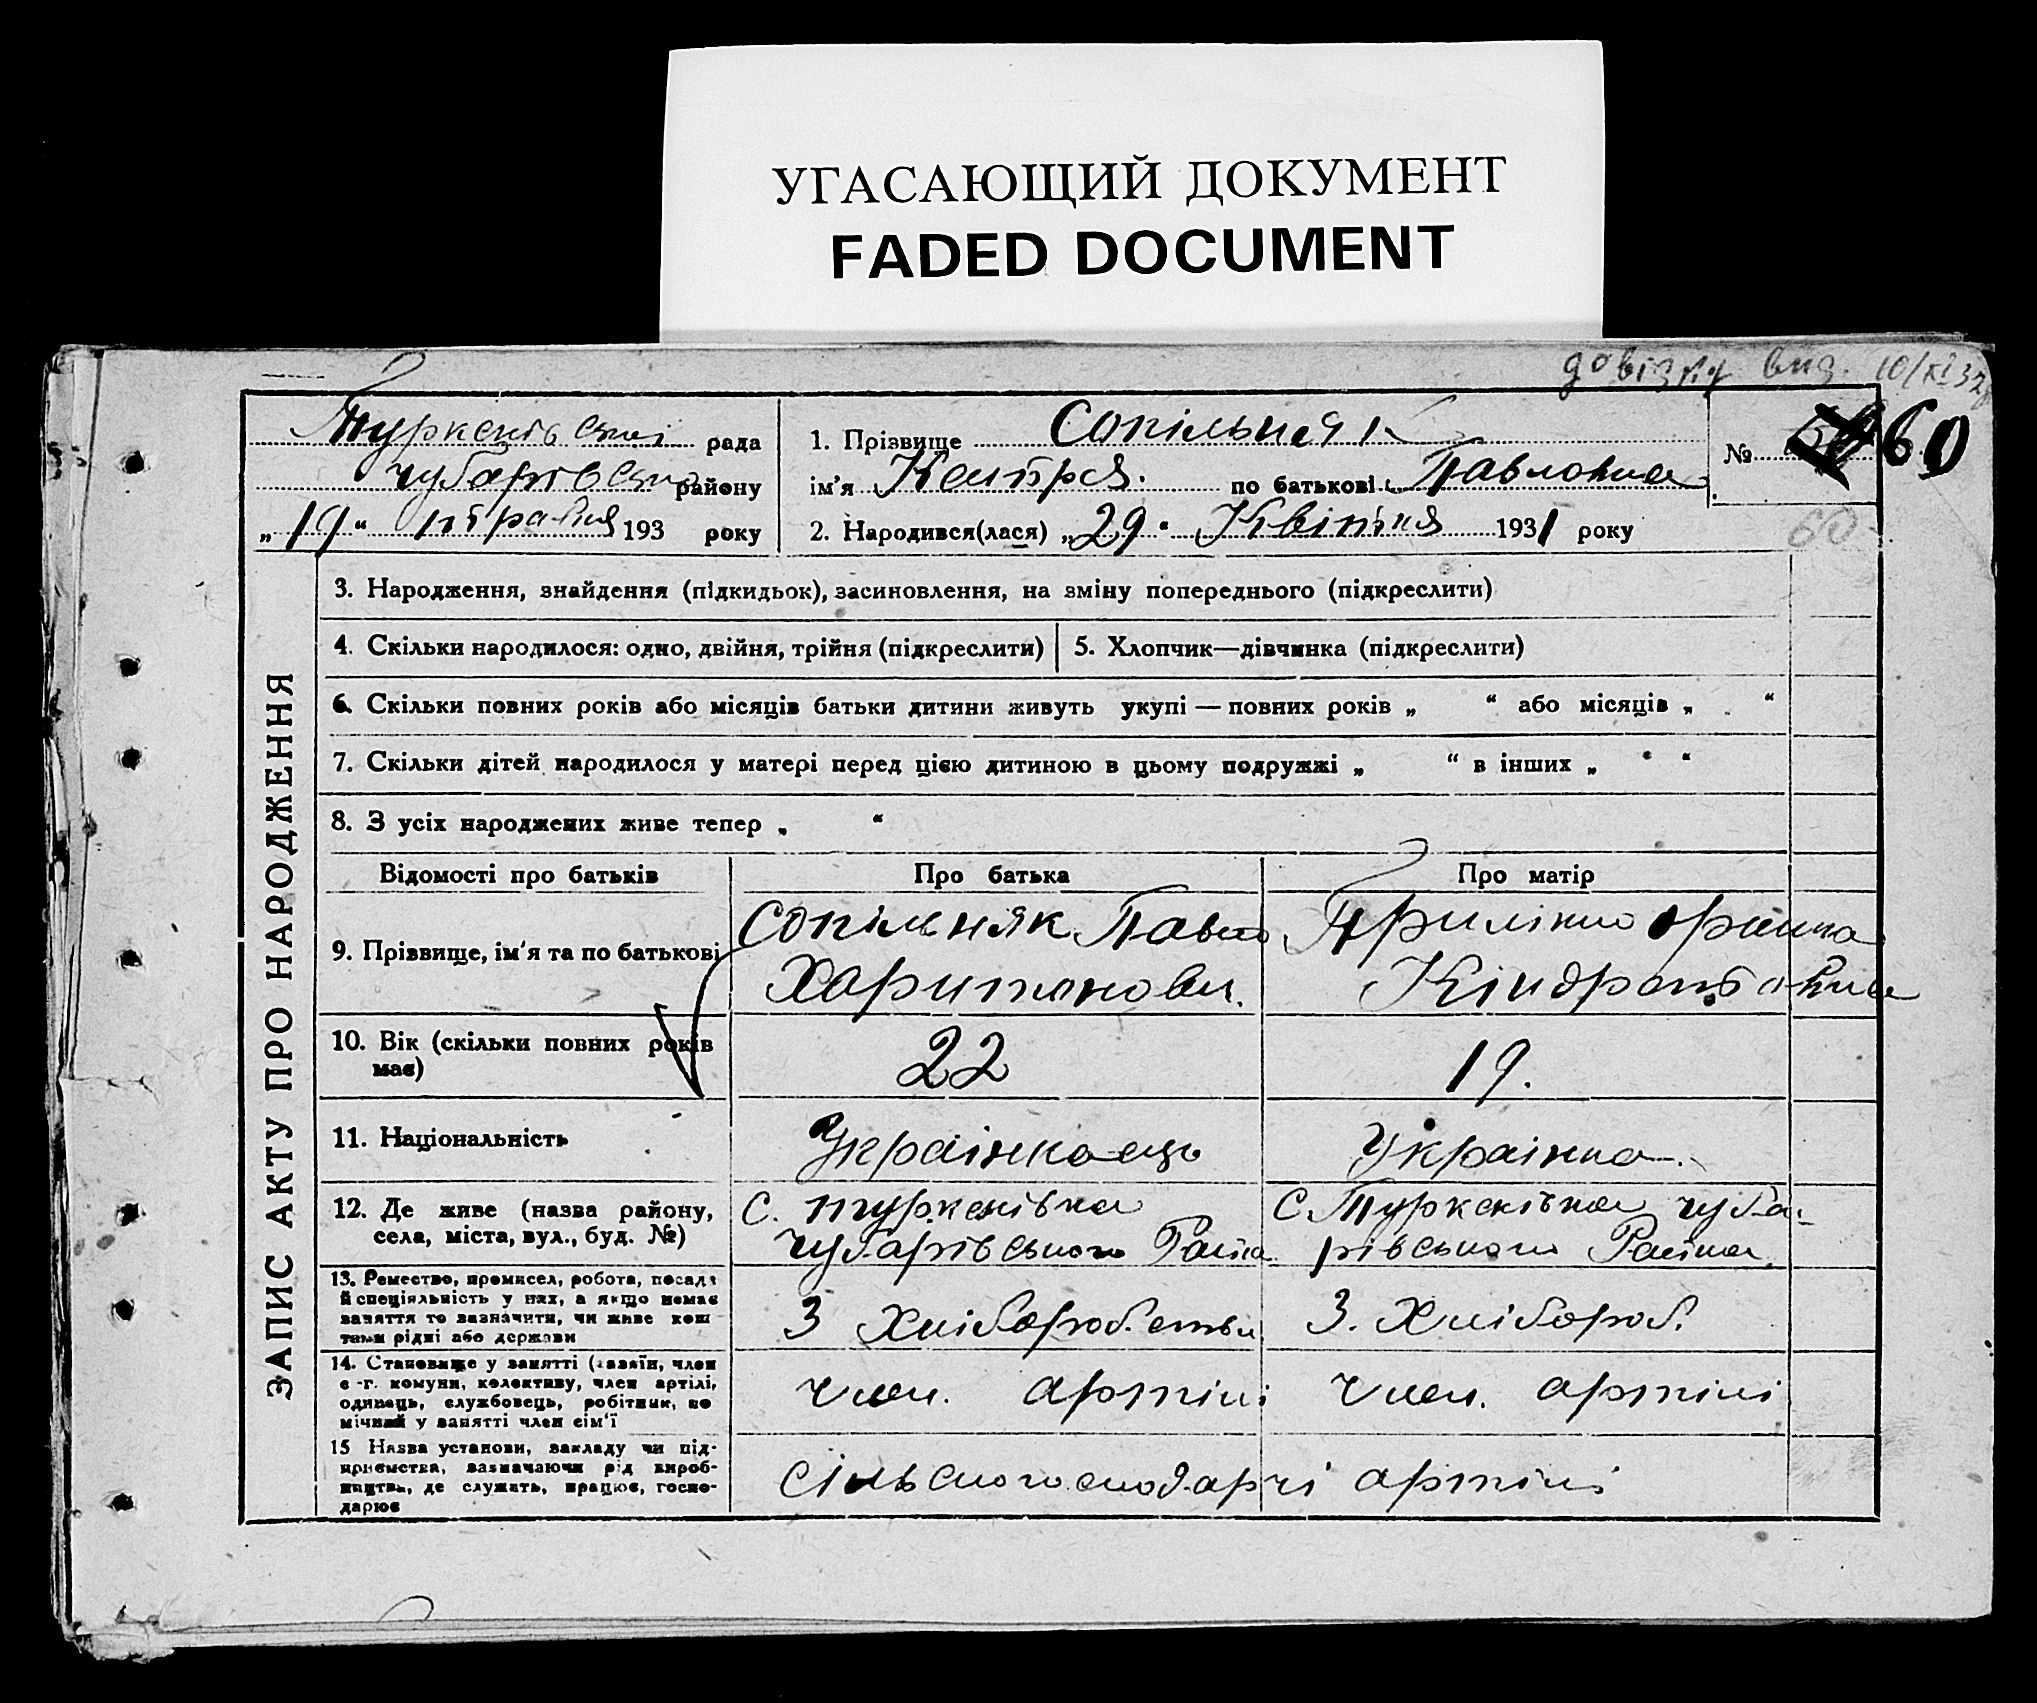 УГАСАЮЩИЙ ДОКУМЕНТ
FADED DOCUMENT
довідку вид. 10/XI 32
Туркенівської рада
Чубарівського району
„19“ травня 193 року
1. Прізвище Сопільняк
ім’я по батькові Павловна
2. Народився(лася) „29“ Квітня 1931 року
№ 60
60
ЗАПИС АКТУ ПРО НАРОДЖЕННЯ
3. Народження, знайдення (підкидьок), засиновлення, на зміну попереднього (підкреслити)
4. Скільки народилося: одно, двійня, трійня (підкреслити)
5. Хлопчик—дівчинка (підкреслити)
6. Скільки повних років або місяців батьки дитини живуть укупі — повних років „ “ або місяців „ “
7. Скільки дітей народилося у матері перед цією дитиною в цьому подружжі „ “ в інших „ “
8. З усіх народжених живе тепер „ “
Відомості про батьків
Про батька
Про матір
9. Прізвище, ім’я та по батькові
Сопільняк Павло
Харитонови.
Кіндратовна
10. Вік (скільки повних років
має)
22
19.
11. Національність
Українкаець
Українка.
12. Де живе (назва району,
села, міста, вул., буд. №)
с. Туркенівка
Чубарівського Району
с. Туркенівка Чуба-
рівського Району
13. Ремество, промисел, робота, посада
й спеціяльність у них, а якщо немає
заняття то зазначити, чи живе кош
тами рідні або держави
З Хліборобства
З. Хлібороб.
14. Становище у занятті (хазяїн, член
с.-г. комуни, колективу, член артілі,
одинець, службовець, робітник, по
мічний у занятті член сім’ї
член. артілі
член. артілі
15 Назва установи, закладу чи під-
приємства, зазначаючи рід вироб-
ництва, де служать, працює, госпо-
дарює
сільськогосподарчі артілі